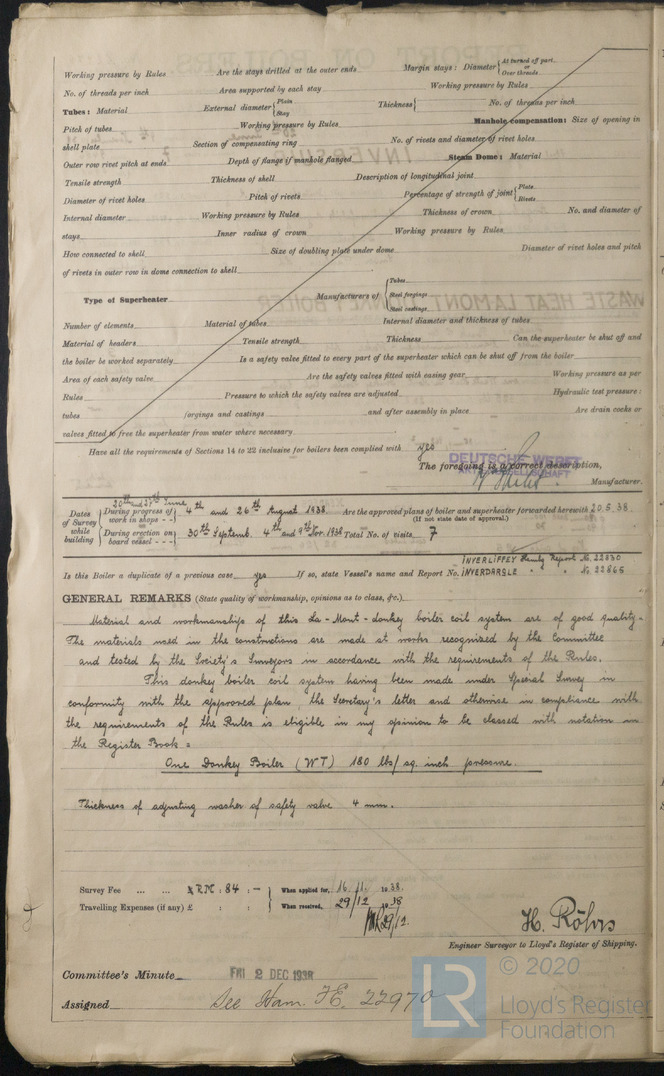 Working pressure by Rules Are the stays drilled at the outer ends Margin stays: Diameter { At turned off part, or Over threads
No. of threads per inch Area supported by each stay Working pressure by Rules
Tubes: Material External diameter { Plain Stay Thickness { No. of threads per inch
Pitch of tubes Working pressure by Rules Manhole compensation: Size of opening in
shell plate Section of compensating ring No. of rivets and diameter of rivet holes
Outer row rivet pitch at ends Depth of flange if manhole flanged Steam Dome: Material
Tensile strength Thickness of shell Description of longitudinal joint
Diameter of rivet holes Pitch of rivets Percentage of strength of joint { Plate Rivets
Internal diameter Working pressure by Rules Thickness of crown No. and diameter of
stays Inner radius of crown Working pressure by Rules
How connected to shell Size of doubling plate under dome Diameter of rivet holes and pitch
of rivets in outer row in dome connection to shell
Type of Superheater Manufacturers of { Tubes Steel forgings Steel castings
Number of elements Material of tubes Internal diameter and thickness of tubes
Material of headers Tensile strength Thickness Can the superheater be shut off and
the boiler be worked separately Is a safety valve fitted to every part of the superheater which can be shut off from the boiler
Area of each safety valve Are the safety valves fitted with easing gear Working pressure as per
Rules Pressure to which the safety valves are adjusted Hydraulic test pressure:
tubes forgings and castings and after assembly in place Are drain cocks or
valves fitted to free the superheater from water where necessary
Have all the requirements of Sections 14 to 22 inclusive for boilers been complied with yes
DEUTSCHE WERFT
AKTIENGESELLSCHAFT
The foregoing is a correct description,
Manufacturer.
Dates of Survey while building { During progress of work in shops - - } 20th and 27th June 4th and 26th August 1938 Are the approved plans of boiler and superheater forwarded herewith 20.6.38.
(If not state date of approval.)
{ During erection on board vessel - - - } 30th Septemb. 4th and 9th Nov. 1938 Total No. of visits 7
INVERLIFFEY Hambg Report No. 22830
Is this Boiler a duplicate of a previous case yes If so, state Vessel's name and Report No. INVERDARGLE " " No. 22865
GENERAL REMARKS (State quality of workmanship, opinions as to class, &c.)
Material and workmanship of this La-Mont-donkey boiler coil system are of good quality.
The materials used in the constructions are made at works recognized by the Committee
and tested by the Society's Surveyors in accordance with the requirements of the Rules.
This donkey boiler coil system having been made under Special Survey in
conformity with the approved plan, the Secretary's letter and otherwise in compliance with
the requirements of the Rules is eligible in my opinion to be classed with notation in
the Register Book:
One Donkey Boiler (WT) 180 lbs/sq. inch pressure.
Thickness of adjusting washer of safety valve 4 mm.
Survey Fee ... ... RM : 84 : - When applied for, 16.11. 1938.
Travelling Expenses (if any) £ : : When received, 29/12 1938
29/12.
H. Röhrs
Engineer Surveyor to Lloyd's Register of Shipping.
Committee's Minute FRI 2 DEC 1938
Assigned See Ham. F.E. 22970
LR
© 2020
Lloyd's Register
Foundation